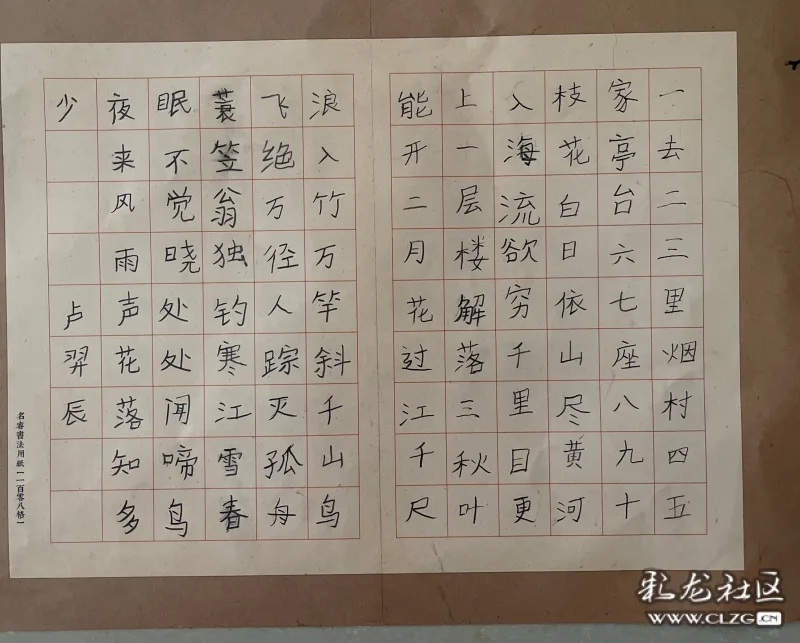 一去二三里烟村四五
家亭台六七座八九十
枝花白日依山尽黄河
入海流欲穷千里目更
上一层楼解落三秋叶
能开二月花过江千尺
浪入竹万竿斜千山鸟
飞绝万径人踪灭孤舟
蓑笠翁独钓寒江雪春
眠不觉晓处处闻啼鸟
夜来风雨声花落知多
少
卢羿辰
名睿書法用紙【一百零八格】
彩龙社区
WWW.CLZG.CN